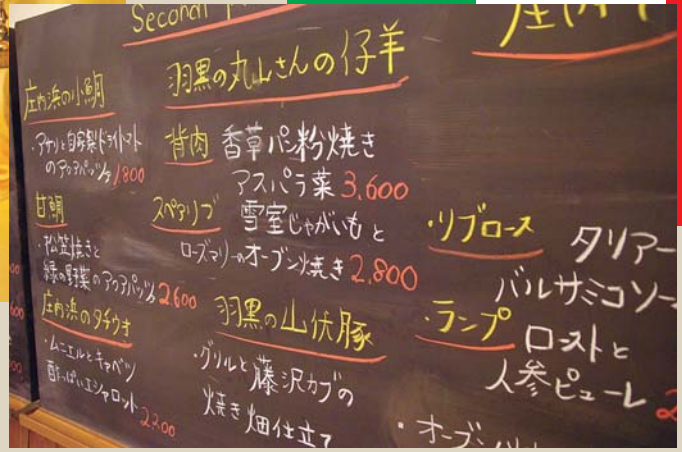 Second
庄内
庄内浜の小鯛
・アサリと自家製ドライトマト
のアクアパッツァ 1.800
甘鯛
・松笠焼きと
緑の野菜のアクアパッツァ 2.600
庄内浜のタチウオ
・ムニエルとキャベツ
酸っぱいエシャロット 2.200
羽黒の丸山さんの仔羊
背肉 香草パン粉焼き
アスパラ菜 3.600
スペアリブ 雪室じゃがいもと
ローズマリーのオーブン焼き 2.800
羽黒の山伏豚
・グリルと藤沢カブの
焼き畑仕立て
・リブロース タリアー
バルサミコソー
・ランプ ローストと
人参ピューレ
・オーブン